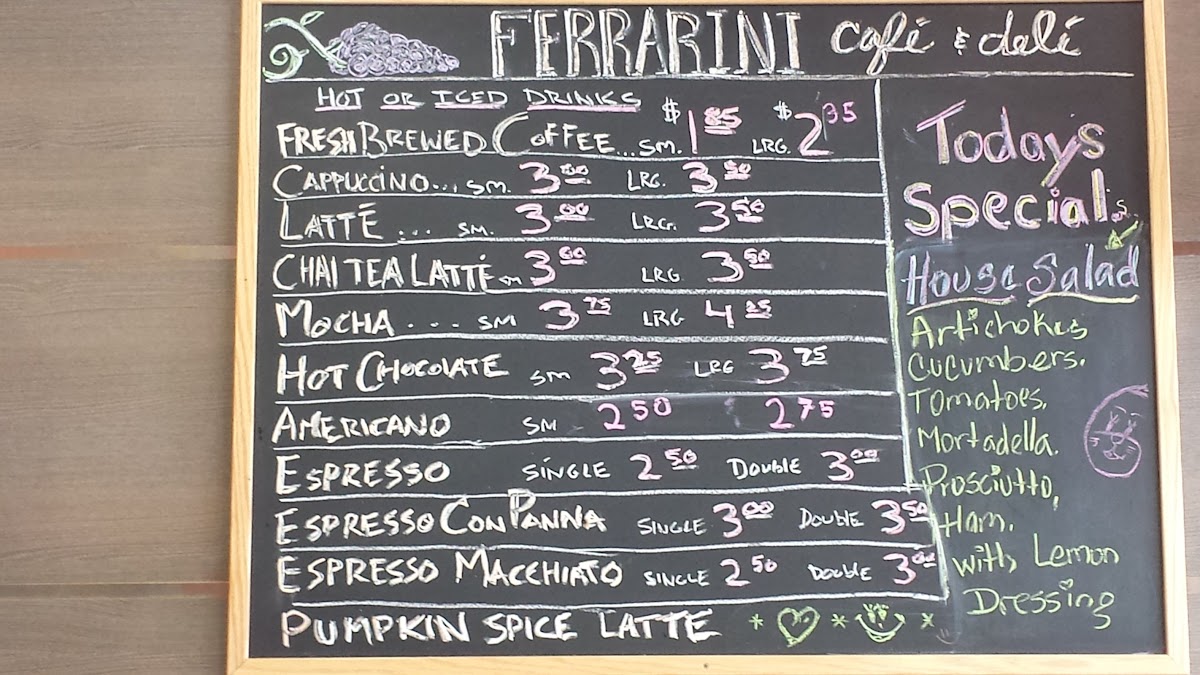 FERRARINI café & deli
HOT OR ICED DRINKS
FRESH BREWED COFFEE... SM. $1 85 LRG. $2 35
CAPPUCCINO... SM. 3 00 LRG. 3 50
LATTÉ ... SM. 3 00 LRG. 3 50
CHAI TEA LATTÉ SM 3 00 LRG 3 50
MOCHA . . . SM 3 75 LRG 4 25
HOT CHOCOLATE SM 3 25 LRG 3 75
AMERICANO SM 2 50 2 75
ESPRESSO SINGLE 2 50 DOUBLE 3 00
ESPRESSO CON PANNA SINGLE 3 00 DOUBLE 3 50
ESPRESSO MACCHIATO SINGLE 2 50 DOUBLE 3 00
PUMPKIN SPICE LATTE * ♡ * *
Todays
Special.s.
House Salad
Artichokes
Cucumbers.
Tomatoes.
Mortadella.
Prosciutto,
Ham.
with Lemon
Dressing